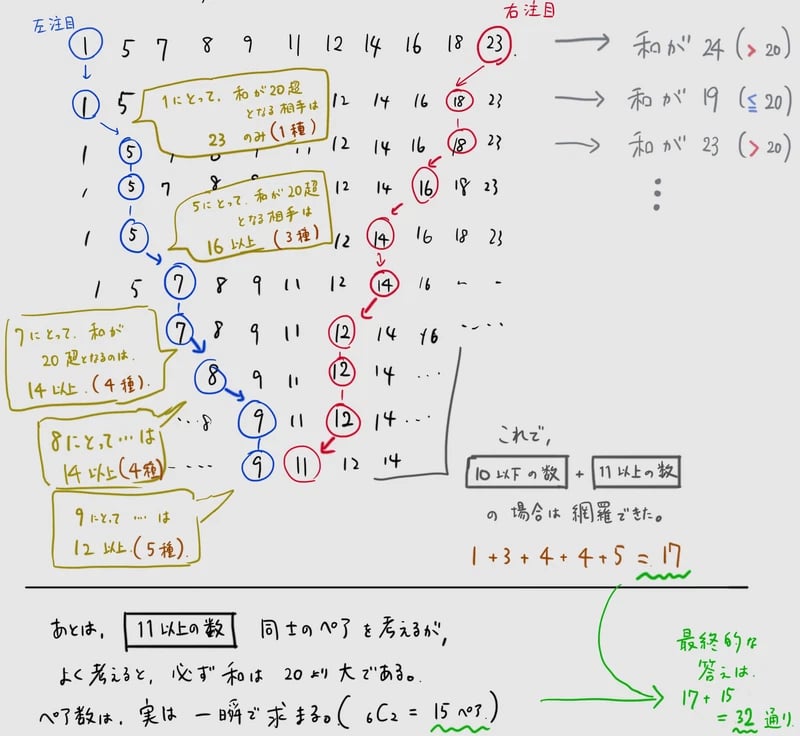 左注目
右注目
1 5 7 8 9 11 12 14 16 18 23 → 和が 24 (> 20)
1 5 12 14 16 18 23 → 和が 19 (≦ 20)
1にとって、和が20超
となる相手は
23 のみ(1種)
1 5 12 14 16 18 23 → 和が 23 (> 20)
1 5 7 8 12 14 16 18 23
5にとって、和が20超
となる相手は
16以上 (3種)
1 5 12 14 16 18 23
1 5 7 8 9 11 12 14 16 - -
7 8 9 11 12 14 16 ‥‥
7にとって、和が
20超となるのは、
14以上、(4種).
8 9 11 12 14 …
…8 9 11 12 14 …
8にとって…は
14以上(4種)
‥‥ 9 11 12 14
9にとって … は
12以上、(5種).
これで、
10以下の数 + 11以上の数
の場合は網羅できた。
1+3+4+4+5 = 17
あとは、 11以上の数 同士のペアを考えるが、
よく考えると、必ず和は 20より大である。
ペア数は、実は一瞬で求まる。( ₆C₂ = 15ペア.)
最終的な
答えは
17+15
= 32 通り